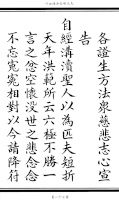 各證生方法衆慈悲志心宣
告
自經溝瀆聖人以為匹夫短折
天年洪範所云六極不勝一
言之忿空懷没世之悲念念
不忘寃寃相對以今請降符